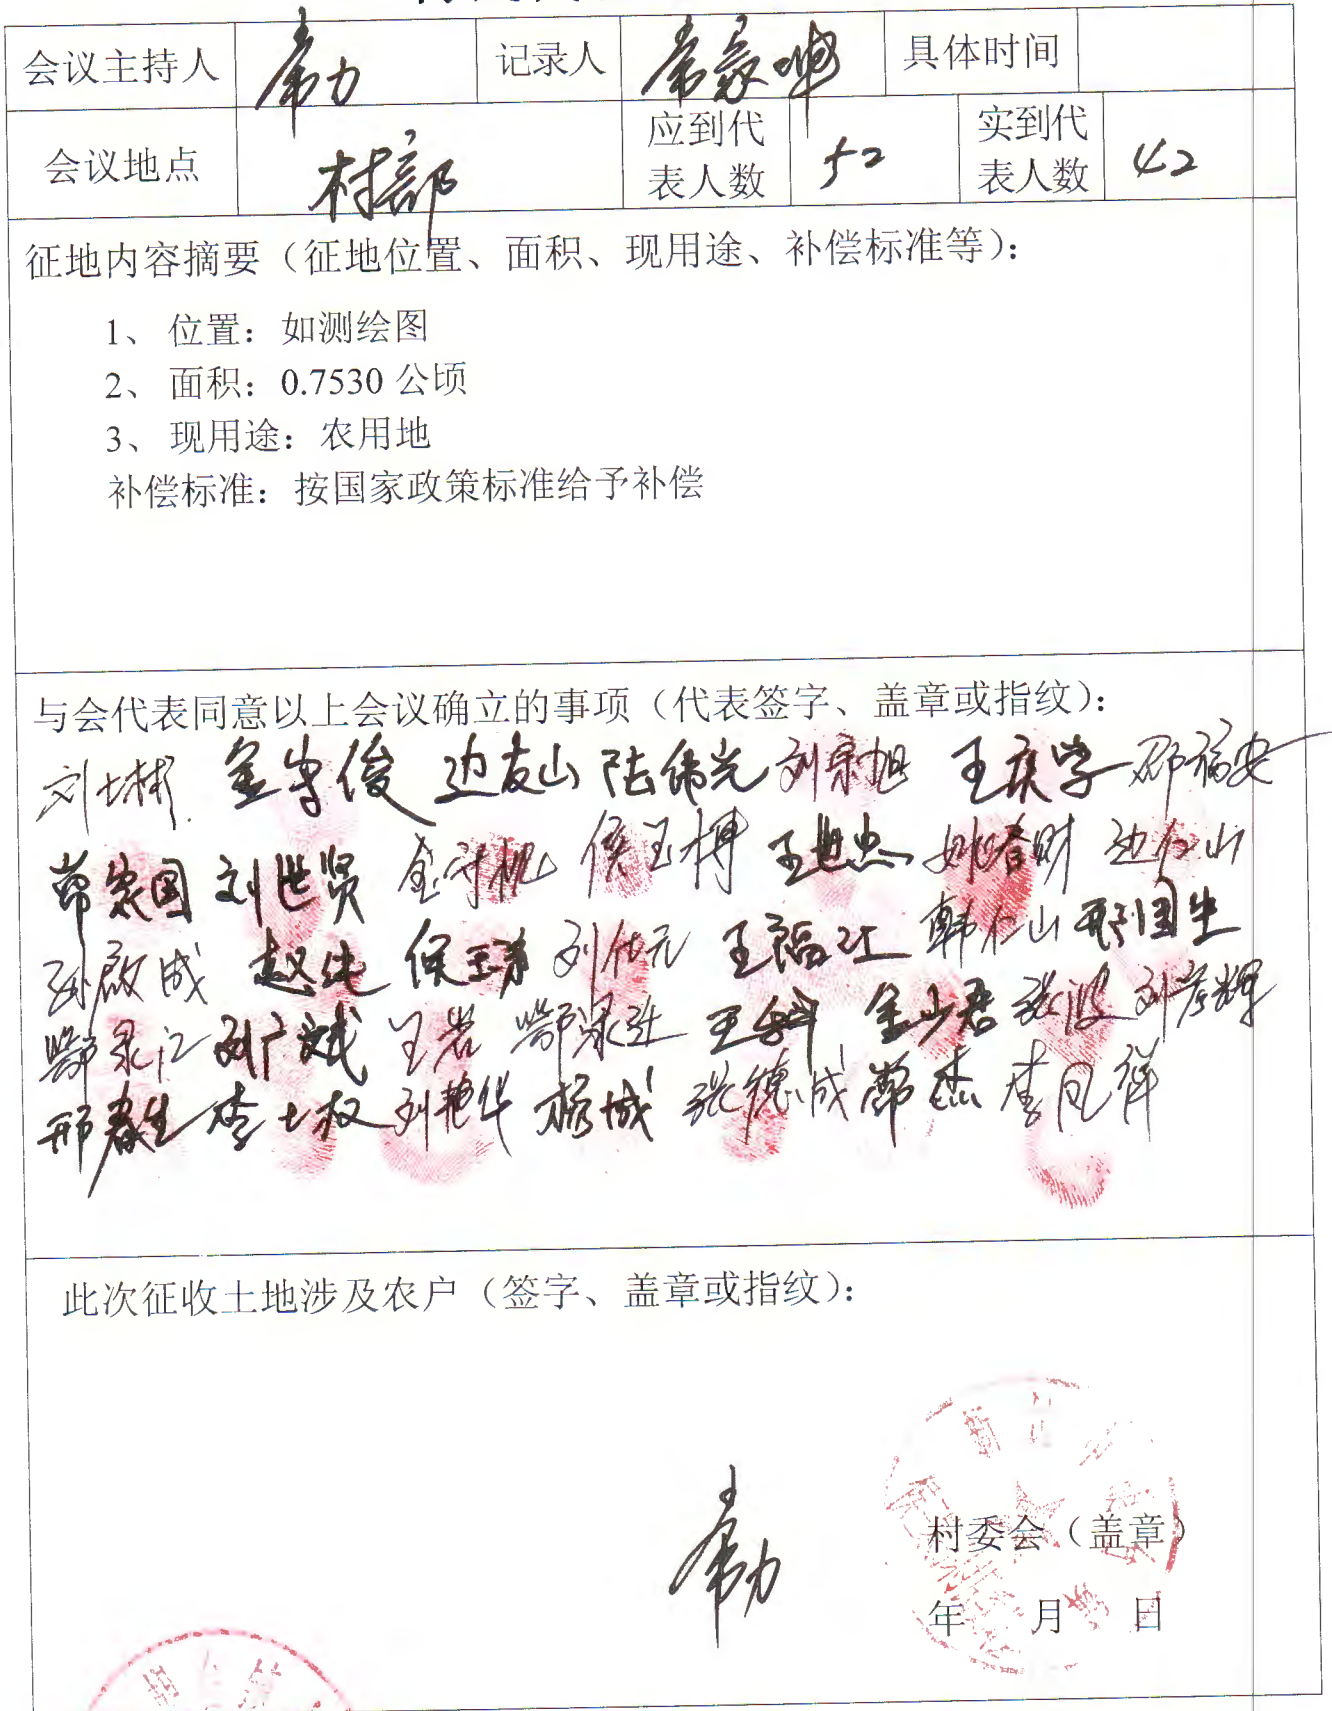 会议主持人 常力 记录人 常家坤 具体时间
会议地点 村部 应到代表人数 52 实到代表人数 42
征地内容摘要（征地位置、面积、现用途、补偿标准等）：
1、 位置：如测绘图
2、 面积：0.7530 公顷
3、 现用途：农用地
补偿标准：按国家政策标准给予补偿
与会代表同意以上会议确立的事项（代表签字、盖章或指纹）：
刘士彬 金守俊 边友山 陆伟光 刘宗旭 王庆学 邢福安
常家国 刘世贤 金守机 侯玉博 王世忠 姚春财 边仁山
孙啟成 赵纯 侯玉芳 刘仕元 王福江 韩仁山 邢国生
鄂录江 刘广斌 王岩 鄂录江 王科 金少君 张波 刘彦辉
邢春生 李士权 刘艳华 杨成 张德成 常杰 李凤祥
此次征收土地涉及农户（签字、盖章或指纹）：
常力
村委会（盖章）
年 月 日